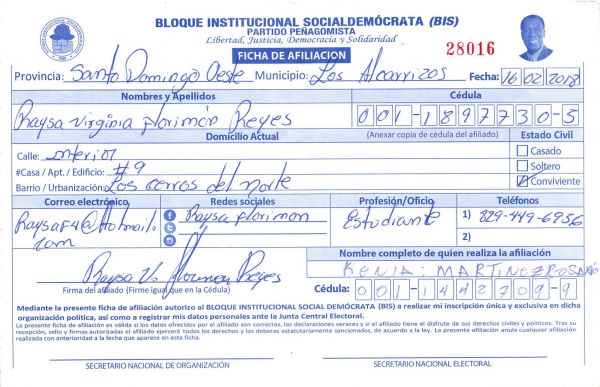 BLOQUE INSTITUCIONAL SOCIALDEMÓCRATA (BIS)
PARTIDO PEÑAGOMISTA
Libertad, Justicia, Democracia y Solidaridad
FICHA DE AFILIACION
28016
Provincia: Santo Domingo Oeste Municipio: Los Alcarrizos Fecha: 16/02/2018
Nombres y Apellidos Cédula
Raysa Virginia florimon Reyes 001-1897730-5
Domicilio Actual (Anexar copia de cédula del afiliado) Estado Civil
Calle: interior Casado
#Casa / Apt. / Edificio: #9 Soltero
Barrio / Urbanización: Los cerros del norte Conviviente
Correo electrónico Redes sociales Profesión/Oficio Teléfonos
RaysaF4@Hotmail.com Raysa florimon Estudiante 1) 829-449-6956
2)
Raysa V. florimon Reyes
Firma del afiliado (Firme igual que en la Cédula)
Nombre completo de quien realiza la afiliación
KENIA: MARTINEZ ROSARIO
Cédula: 001-1442709-9
Mediante la presente ficha de afiliación autorizo al BLOQUE INSTITUCIONAL SOCIAL DEMÓCRATA (BIS) a realizar mi inscripción única y exclusiva en dicha
organización política, así como a registrar mis datos personales ante la Junta Central Electoral.
La presente ficha de afiliación es válida si los datos ofrecidos por el afiliado son correctos, las declaraciones veraces y si el afiliado tiene el disfrute de sus derechos civiles y políticos. Tras su
recepción, sello y firmas autorizadas el afiliado ejercerá todos los derechos y los deberes estatutariamente sancionados, de acuerdo a la ley. La presente afiliación anula cualquier afiliación
realizada con anterioridad a la fecha que aparece en esta ficha.
SECRETARIO NACIONAL DE ORGANIZACIÓN SECRETARIO NACIONAL ELECTORAL